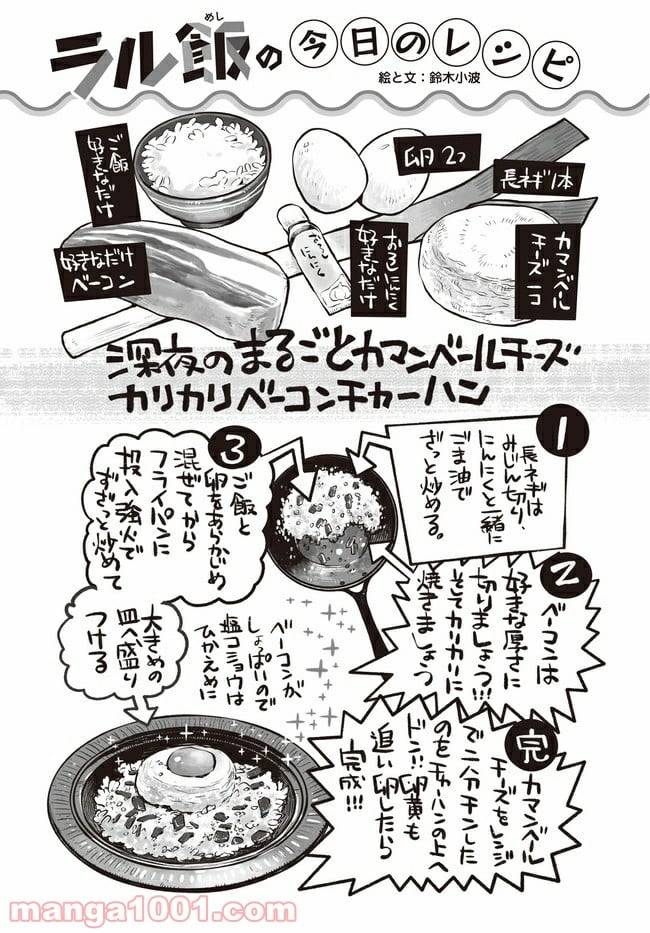 めし
ラル飯の今日のレシピ
絵と文:鈴木小波
ご飯
好きなだけ
卵2つ
長ネギ1本
カマンベール
チーズ一コ
おろしにんにく
好きなだけ
好きなだけ
ベーコン
深夜のまるごとカマンベールチーズ
カリカリベーコンチャーハン
1
長ネギは
みじん切り、
にんにくと一緒に
ごま油で
ざっと炒める。
2
ベーコンは
好きな厚さに
切りましょう!!!
そしてカリカリに
焼きましょう
3
ご飯と
卵をあらかじめ
混ぜてから
フライパンに
投入強火で
ずざっと炒めて
ベーコンが
しょっぱいので
塩コショウは
ひかえめに
大きめの
皿へ盛り
つける
完
カマンベール
チーズをレンジ
で二分チンした
のをチャーハンの上へ
ドン!!卵黄も
追い卵したら
完成!!!
manga1001.com